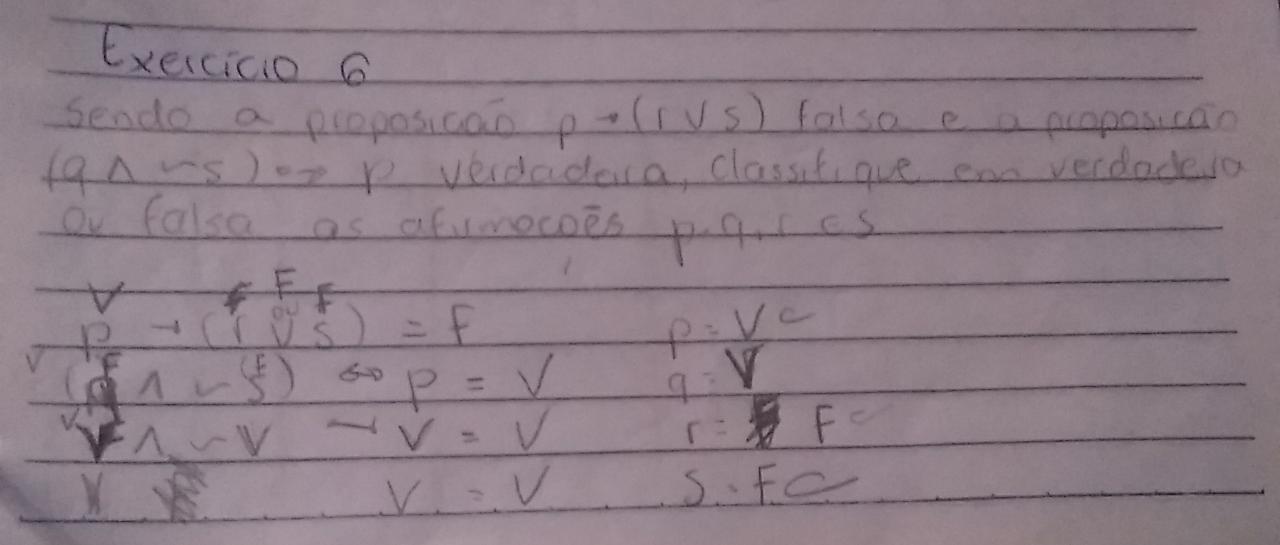 Exercicio 6
Sendo a proposicão p → (r V s) falsa e a proposicão
(q ∧ ~s) ↔ p verdadeira, classifique em verdadeira
ou falsa as afirmacoẽs p, q, r e s
V F F F
p → (r V s) = F p = V
V (q ∧ ~ s) ↔ p = V q = V
V ∧ ~ V → V = V r = F
V V = V s = F